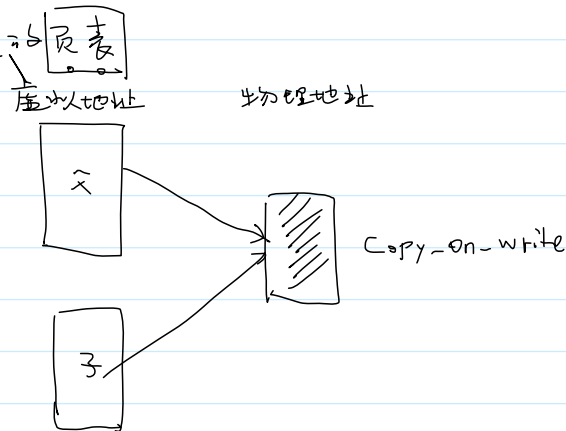 页表
虚拟地址 物理地址
父
Copy_on_write
子